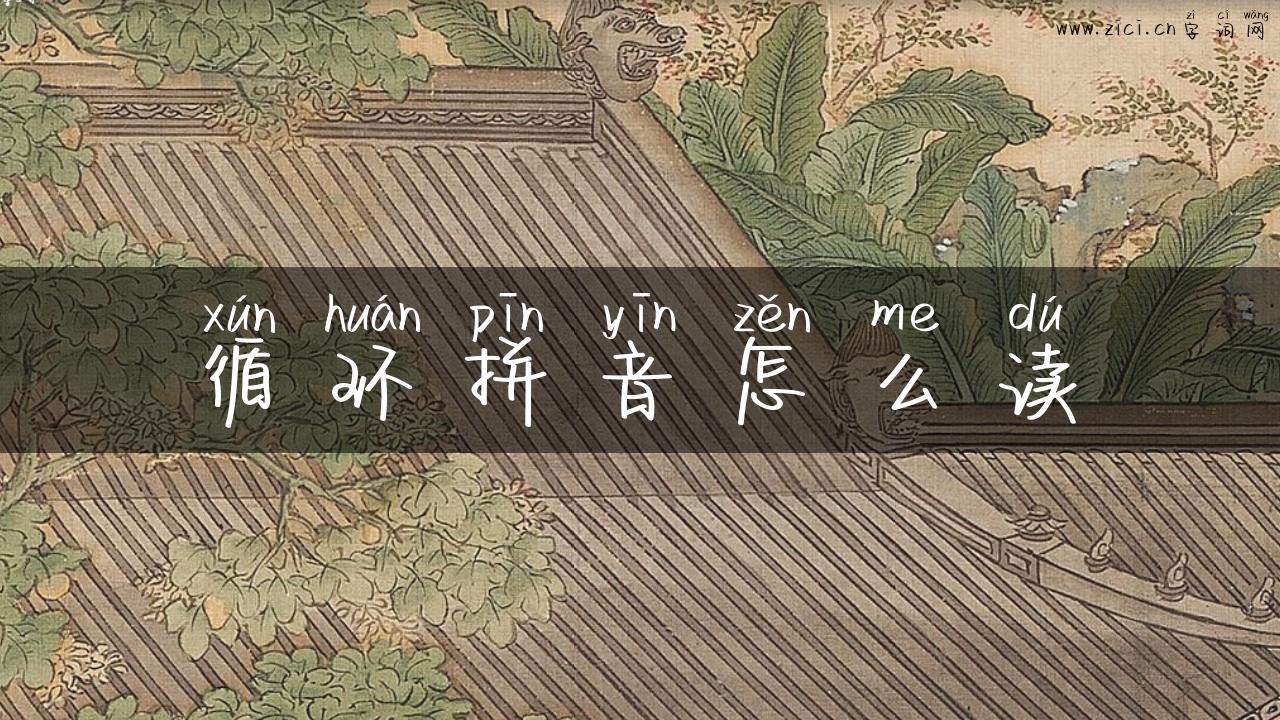 zì cí wǎng
www.zici.cn 字词网
xún huán pīn yīn zěn me dú
循环拼音怎么读